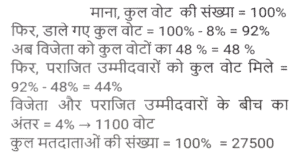 माना, कुल वोट की संख्या = 100%
फिर, डाले गए कुल वोट = 100% - 8% = 92%
अब विजेता को कुल वोटों का 48 % = 48 %
फिर, पराजित उम्मीदवारों को कुल वोट मिले =
92% - 48% = 44%
विजेता और पराजित उम्मीदवारों के बीच का
अंतर = 4% → 1100 वोट
कुल मतदाताओं की संख्या = 100% = 27500